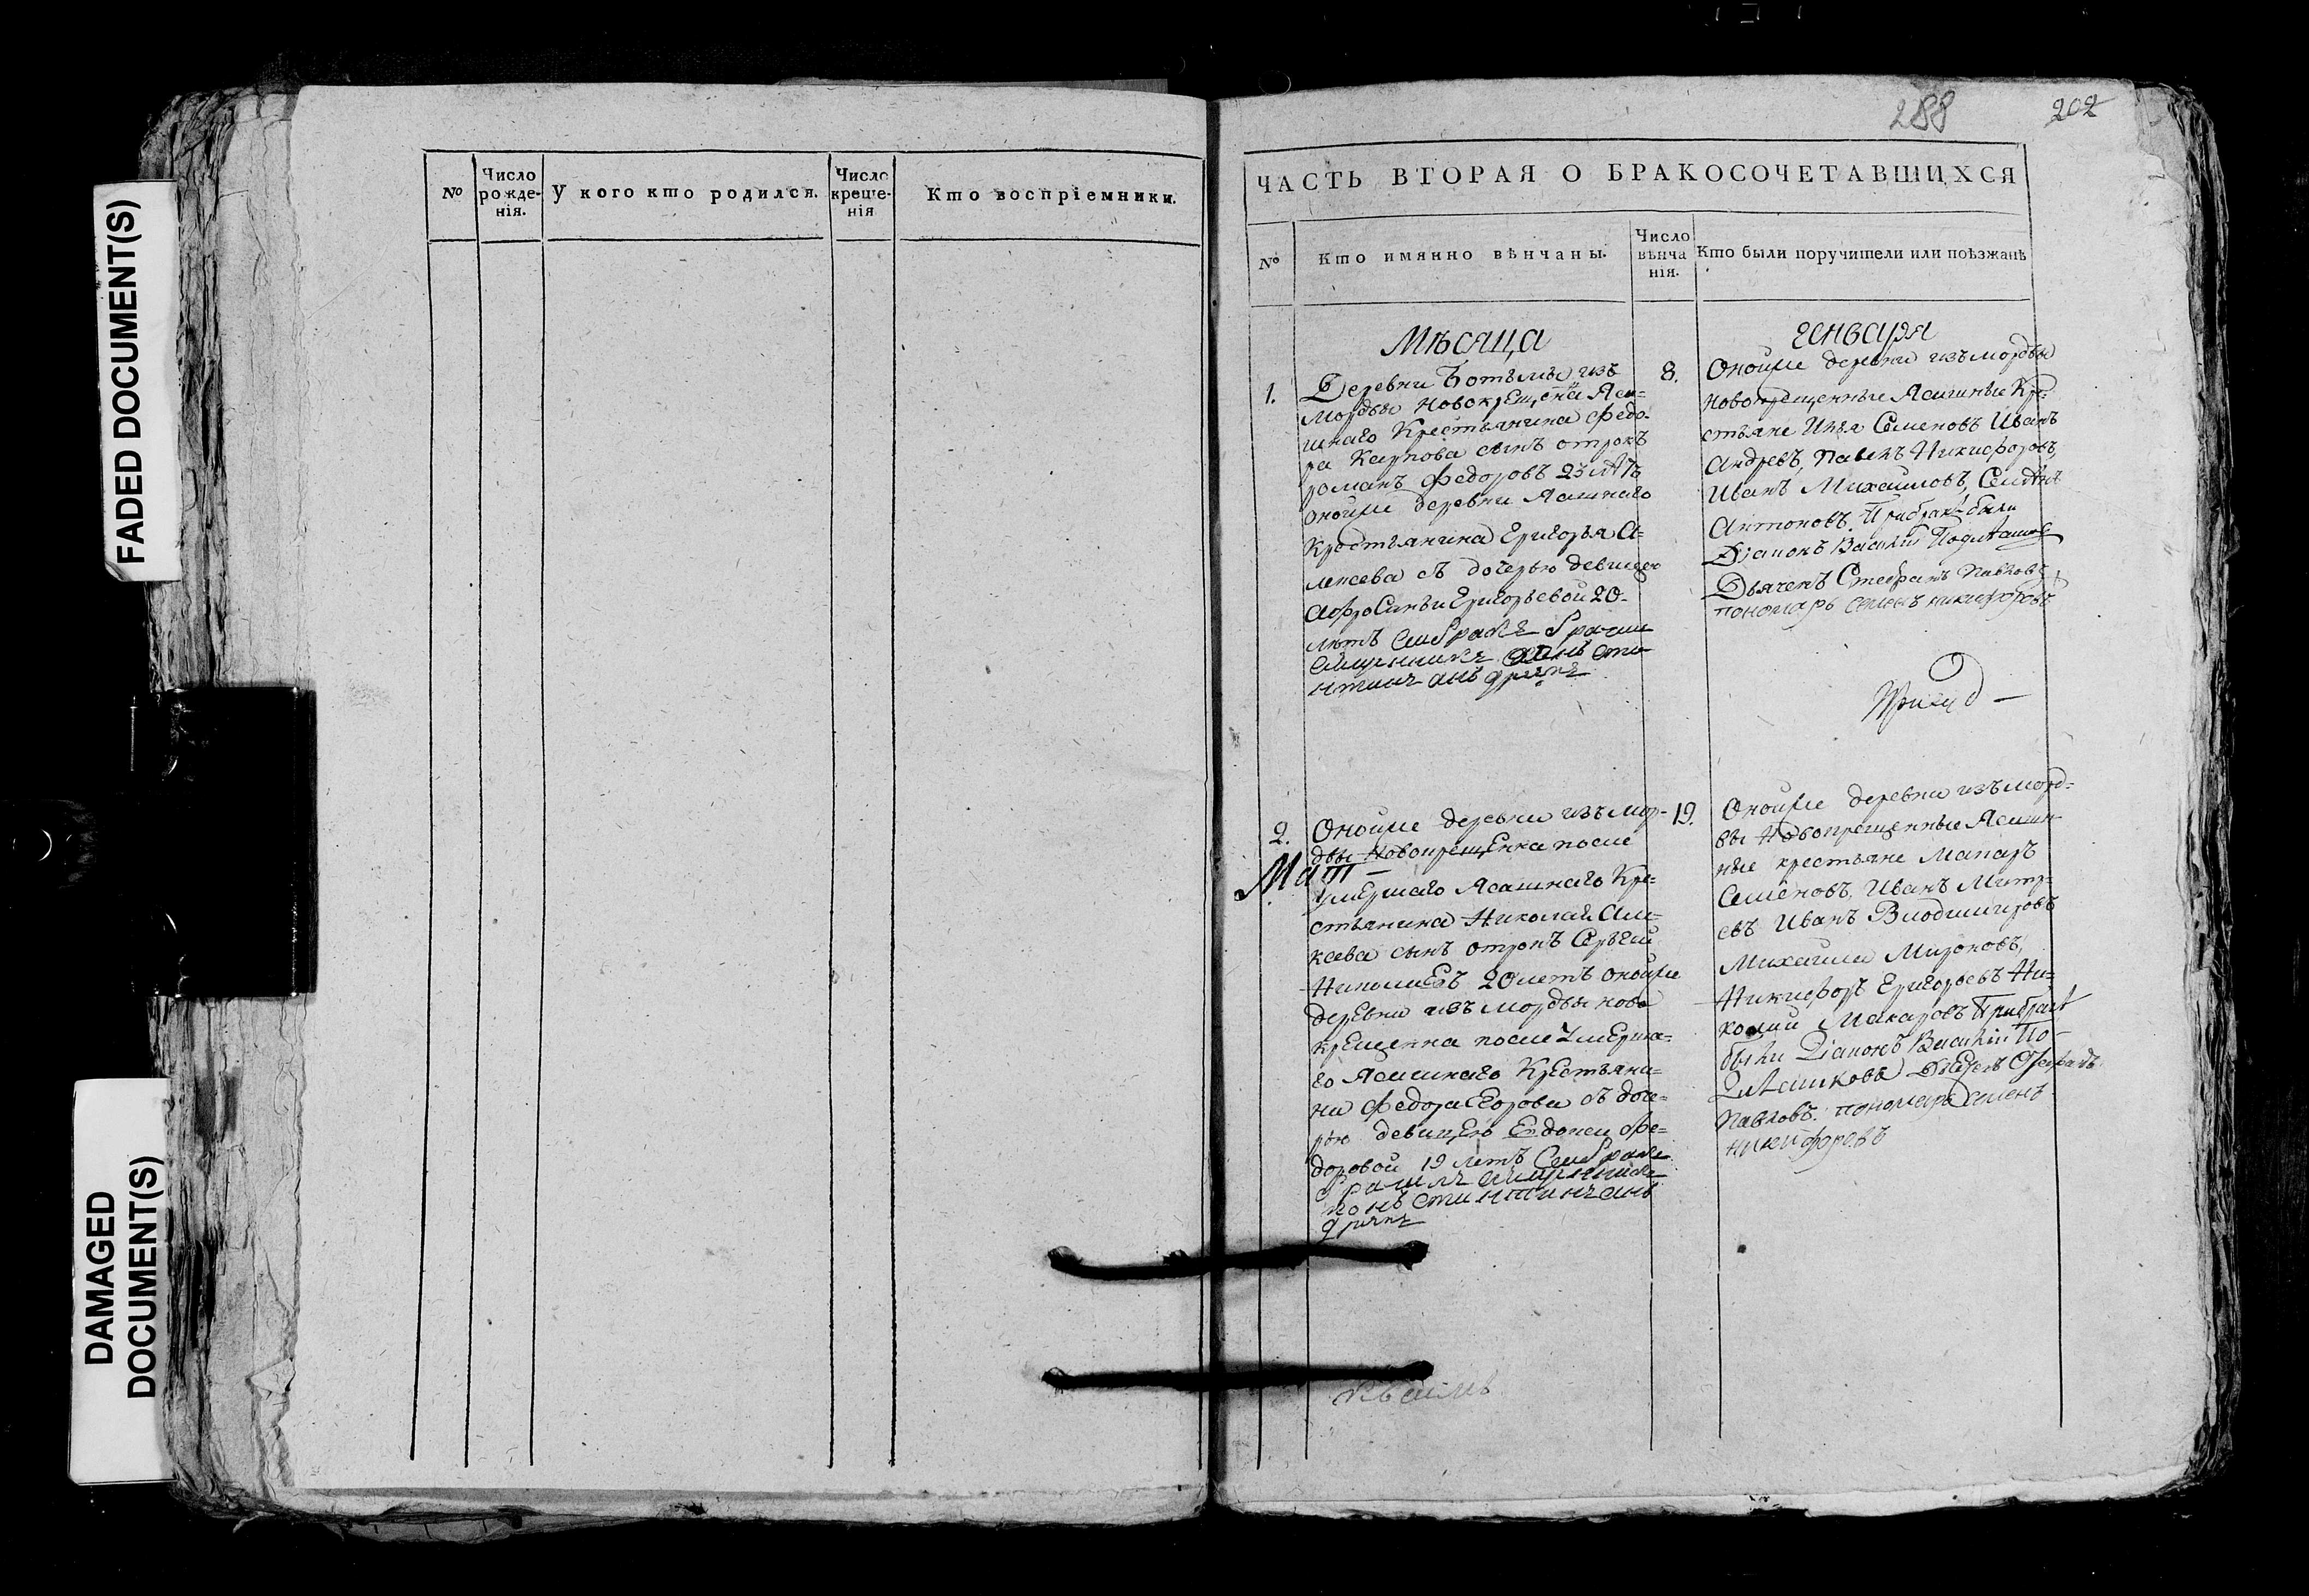 FADED DOCUMENT(S)
DAMAGED
DOCUMENT(S)
№
Число
рожде-
нія.
У кого кто родился.
Число
креще-
нія
Кто воспріемники.
288
202
ЧАСТЬ ВТОРАЯ О БРАКОСОЧЕТАВШИХСЯ
№
Кто имянно вѣнчаны.
Число
вѣнча
нія.
Кто были поручители или поѣзжанѣ
Мѣсяца
Генваря
1.
Деревни Ботьмы изъ
Мордвы Новокрещена Яса-
шнаго Крестьянина Федо-
ра Карпова сынъ отрокъ
романъ Федоровъ 23 лѣтъ
оной же деревни Ясашнаго
Крестьянина Григорья А-
лексева съ дочерью девицею
Афросиньи Григорьевой 20-
лѣтъ
8.
Оной же деревни изъ мордвы
новокрещенные Ясашные Кре-
стьяне Илья Семеновъ Иванъ
Андревъ, Павелъ Никифоровъ,
Иванъ Михаиловъ, Семенъ
Антоновъ. При браке были
Діаконъ Василій
Дьячекъ Стефанъ Павловъ
пономарь семенъ никифоровъ
2.
Оной же деревни изъ мор-
двы Новокрещенка после
умершаго Ясашнаго Кре-
стьянина Николая Але-
ксева сынъ отрокъ Сергей
Николаевъ 20 летъ оной же
деревни изъ мордвы ново
крещенна после умерша-
го Ясашнаго Крестьяни-
на Федора Егорова съ доче-
рью девицею Евдокеи Фе-
доровой 19 летъ
19.
Оной же деревни изъ морд-
вы Новокрещенные Ясаш-
ные крестьяне Макаръ
Семеновъ, Иванъ Митр-
евъ Иванъ Влодимировъ
Михаила Мироновъ,
Никифоръ Григоревъ Ни-
колай Макаровъ При браке
были Діаконъ Василій
Стефанъ
Павловъ. пономарь семенъ
никифоровъ